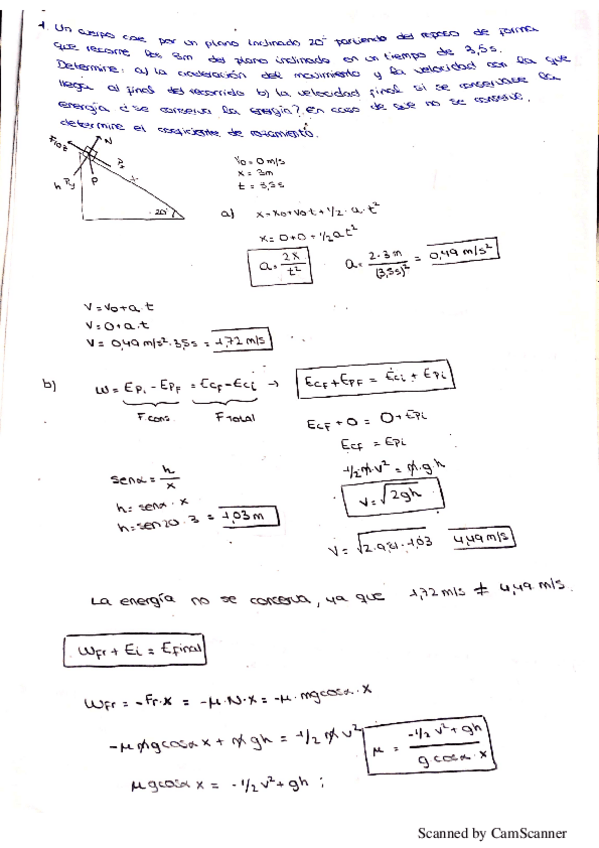 1. Un cuerpo cae por un plano inclinado 20° partiendo del reposo de forma
que recorre los 3m del plano inclinado en un tiempo de 3,5s.
Determine: a) la aceleración del movimiento y la velocidad con la que
llega al final del recorrido b) la velocidad final si se conservase la
energía ¿se conserva la energía? En caso de que no se conserve,
determine el coeficiente de rozamiento.
Froz
N
Px
Py
P
h
x
20°
v₀ = 0 m/s
x = 3m
t = 3,5s
a) x = x₀ + v₀t + 1/2 · a · t²
x = 0 + 0 + 1/2 a t²
a = 2x / t²
a = 2·3m / (3,5s)² = 0,49 m/s²
V = V₀ + a · t
V = 0 + a · t
V = 0,49 m/s² · 3,5s = 1,72 m/s
b) W = Epi - EpF = EcF - Eci → EcF + EpF = Eci + Epi
F cons
F total
EcF + 0 = 0 + Epi
EcF = Epi
1/2 m v² = m · g h
V = √2gh
V = √2·9,81·1,03 4,49 m/s
senα = h / x
h = senα · x
h = sen20 · 3 = 1,03 m
La energía no se conserva, ya que 1,72 m/s ≠ 4,49 m/s.
WFr + Ei = Efinal
WFr = -Fr · x = -μ · N · x = -μ · mg cosα · x
-μ m g cosα x + m gh = 1/2 m v²
μ = -1/2 v² + gh / g cosα · x
μ g cosα x = -1/2 v² + gh ;
Scanned by CamScanner